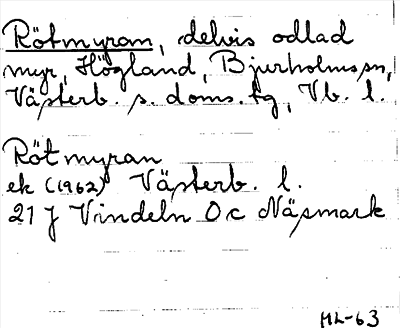 Rötmyran, delvis odlad
myr, Högland, Bjurholms sn,
Västerb. s. doms. tg, Vb. l.
Rötmyran
ek (1962) Västerb. l.
21 J Vindeln Oc Näsmark
ML-63